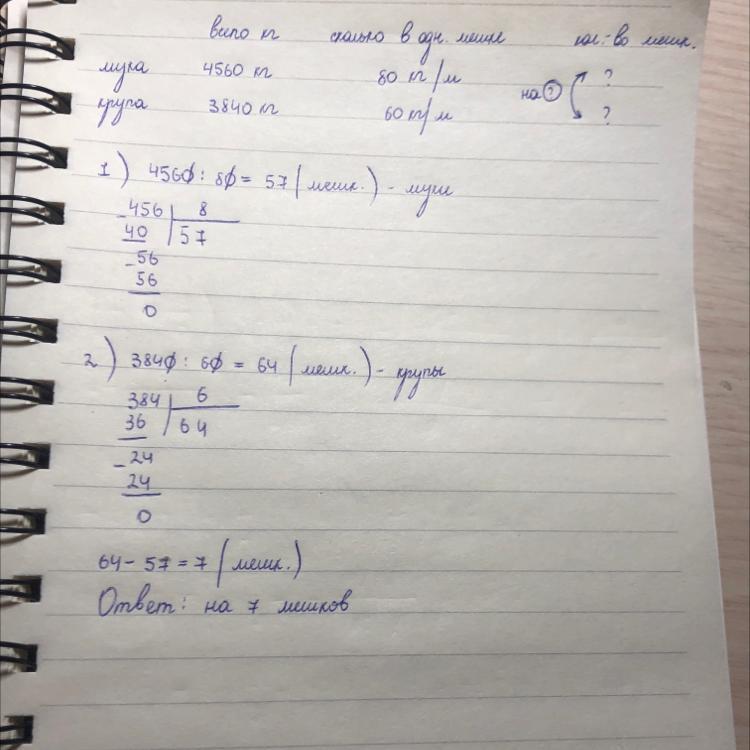 было кг сколько в одн. мешке кол.-во мешк.
мука 4560 кг 80 кг/м на ? ?
крупа 3840 кг 60 кг/м ?
1) 4560 : 80 = 57 (мешк.) - муки
456 8
40 57
-56
56
0
2) 3840 : 60 = 64 (мешк.) - крупы
384 6
36 64
-24
24
0
64 - 57 = 7 (мешк.)
Ответ: на 7 мешков